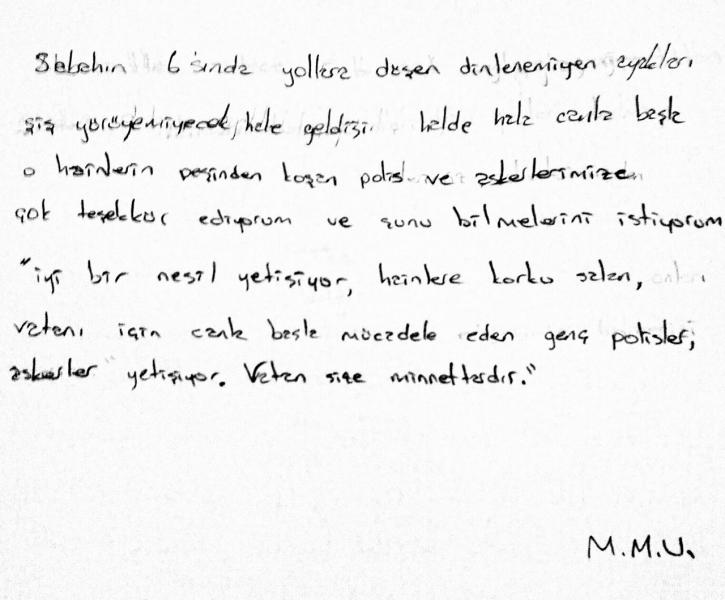 Sabahın 6'sında yollara düşen dinlenemiyen ayakları
şiş yürüyemiyecek hale geldiği halde hala canla başla
o hainlerin peşinden koşan polis ve askerlerimize
çok teşekkür ediyorum ve şunu bilmelerini istiyorum
"iyi bir nesil yetişiyor, hainlere korku salan,
vatanı için canla başla mücadele eden genç polisler,
askerler yetişiyor. Vatan size minnettardır."
M.M.U.